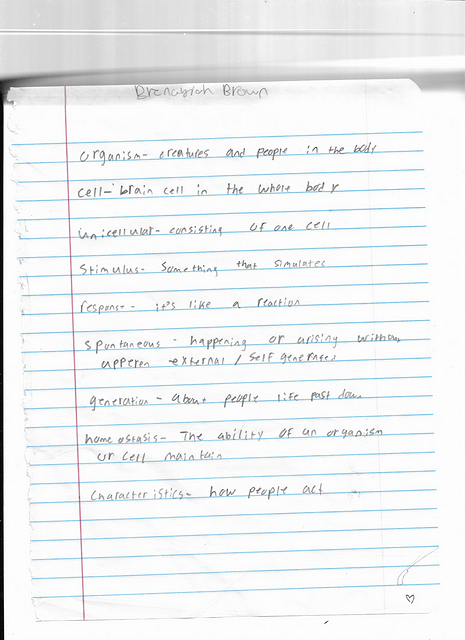 Brenayiah Brown
organism- creatures and people in the body
cell- brain cell in the whole body
unicellular- consisting of one cell
Stimulus- Something that simulates
response- it's like a reaction
spontaneous - happening or arising without
apperen external / self generated
generation - about people life past down
homeostasis- The ability of an organism
or cell maintain
Characteristics- how people act